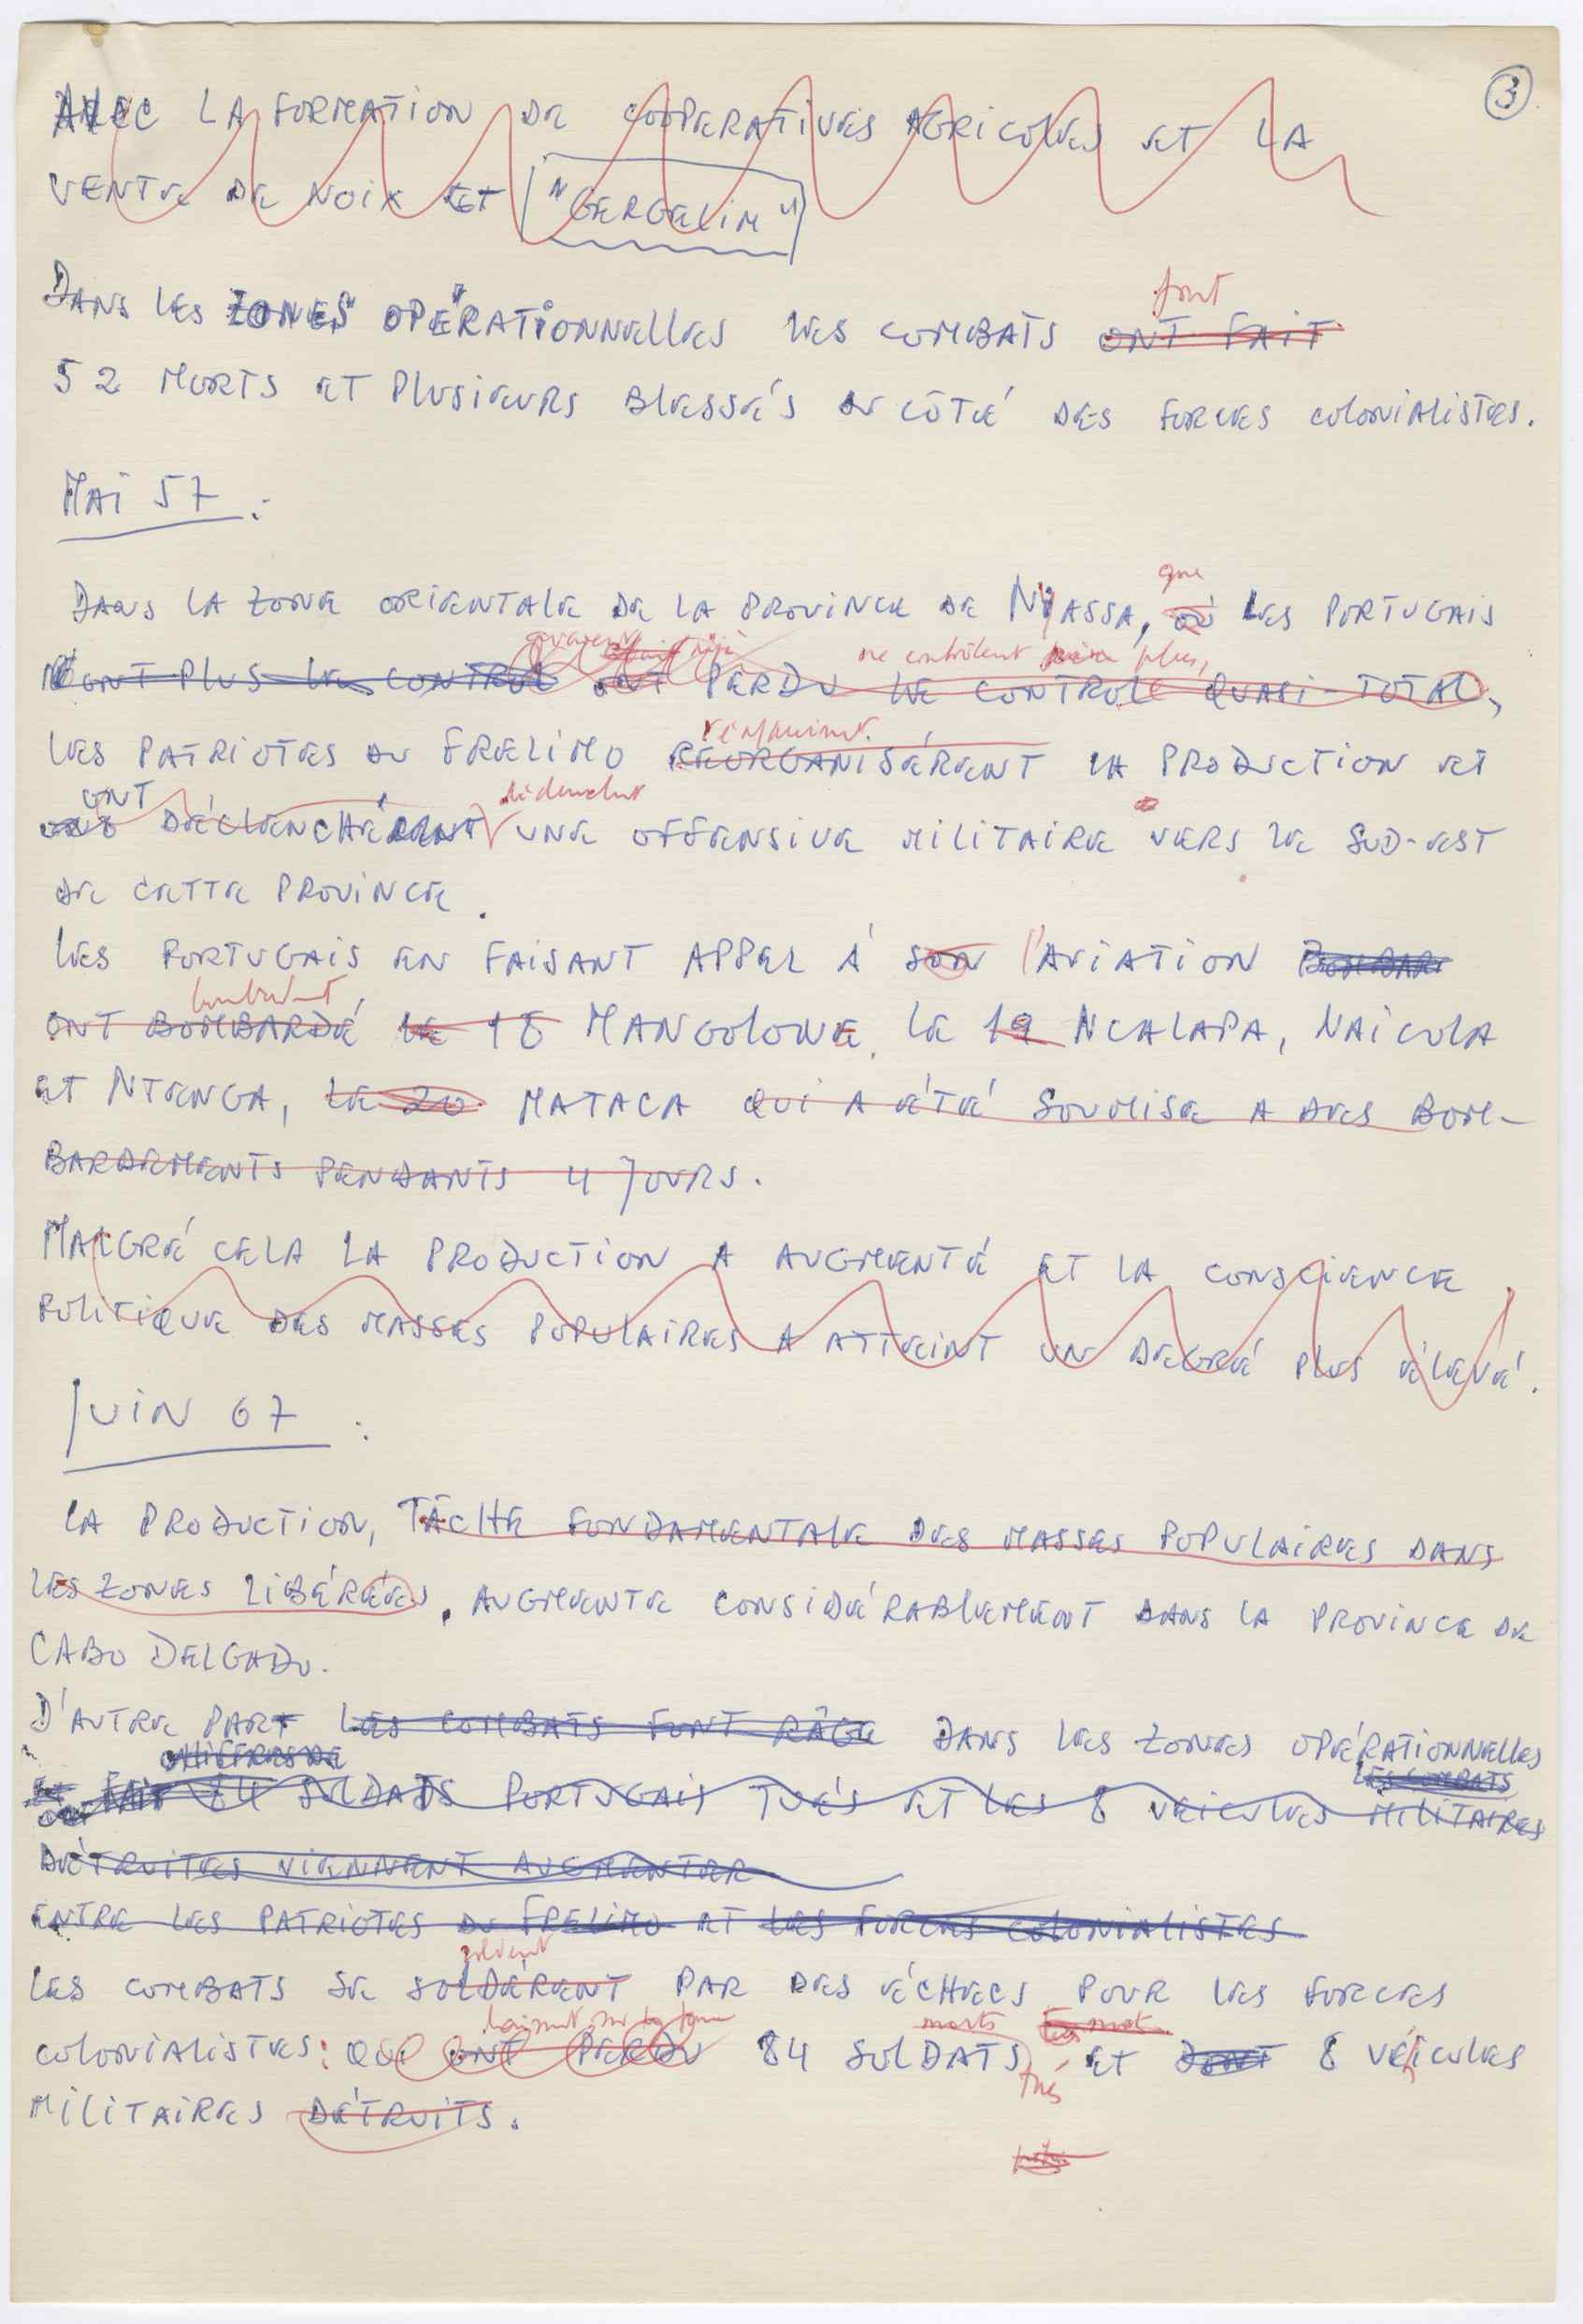 3
AVEC LA FORMATION DE COOPERATIVES AGRICOLES ET LA
VENTE DE NOIX ET "GERGELIM"
font
DANS LES ZONES OPERATIONNELLES LES COMBATS ONT FAIT
52 MORTS ET PLUSIEURS BLESSÉS DU CÔTÉ DES FORCES COLONIALISTES.
MAI 57 :
que
DANS LA ZONE ORIENTALE DE LA PROVINCE DE NYASSA, OÙ LES PORTUGAIS
ne contrôlent plus,
N'ONT PLUS LE CONTROLE ONT PERDU LE CONTROLE QUASI-TOTAL,
LES PATRIOTES DU FRELIMO RÉORGANISÈRENT LA PRODUCTION ET
ONT DÉCLENCHÉRENT UNE OFFENSIVE MILITAIRE VERS LE SUD-EST
DE CETTE PROVINCE.
LES PORTUGAIS EN FAISANT APPEL À SON l'AVIATION BOMBAR
bombardent
ONT BOMBARDÉ LE 18 MANGOLOWE, LE 19 NCALAPA, NAICULA
ET NTENGA, LE 20 MATACA QUI A ÉTÉ SOUMISE A DES BOM-
BARDEMENTS PENDANTS 4 JOURS.
MALGRÉ CELA LA PRODUCTION A AUGMENTÉ ET LA CONSCIENCE
POLITIQUE DES MASSES POPULAIRES A ATTEINT UN DEGRÉ PLUS ÉLEVÉ.
JUIN 67 :
LA PRODUCTION, TÂCHE FONDAMENTALE DES MASSES POPULAIRES DANS
LES ZONES LIBÉRÉES, AUGMENTE CONSIDÉRABLEMENT DANS LA PROVINCE DE
CABO DELGADO.
D'AUTRE PART LES COMBATS FONT RÂGE DANS LES ZONES OPÉRATIONNELLES
CHIFFRES DE
LES COMBATS
FAIT 84 SOLDATS PORTUGAIS TUÉS ET LES 8 VEICULES MILITAIRES
DÉTRUITES VIENNENT AUGMENTER
ENTRE LES PATRIOTES DU FRELIMO ET LES FORCES COLONIALISTES
soldent
LES COMBATS SE SOLDÈRENT PAR DES ÉCHECS POUR LES FORCES
morts
COLONIALISTES: QUI ONT PERDU 84 SOLDATS tués ET DONT 8 VÉHICULES
MILITAIRES DÉTRUITS.